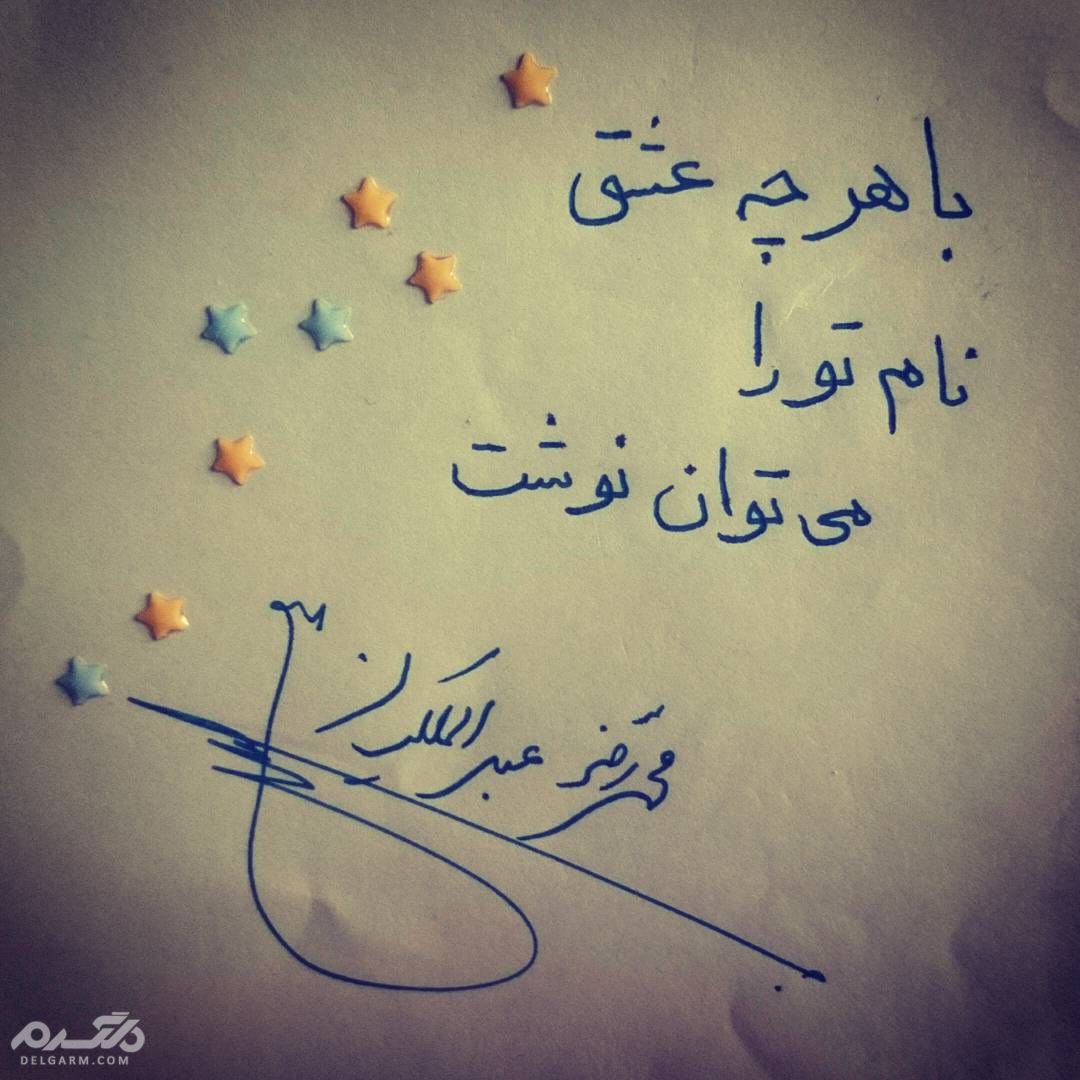 با هر چه عشق
نام تو را
می توان نوشت
محمدرضا عبدالملکیان
دلگرم
DELGARM.COM